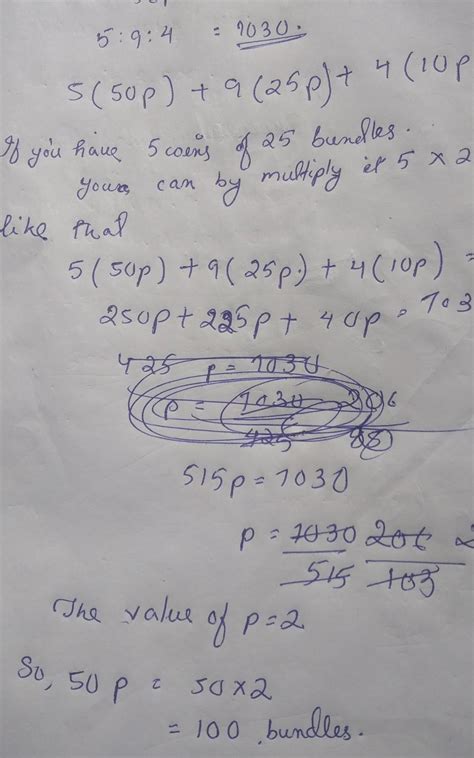 5 : 9 : 4 = 1030.
5(50p) + 9(25p) + 4(10p
If you have 5 coins of 25 bundles.
you can by multiply it 5 × 2
like that
5(50p) + 9(25p) + 4(10p) =
250p + 225p + 40p = 103
425 p = 1030
p = 1030 206
425 88
515p = 1030
p = 1030 206 2
515 103
The value of p = 2
So, 50p = 50×2
= 100 bundles.